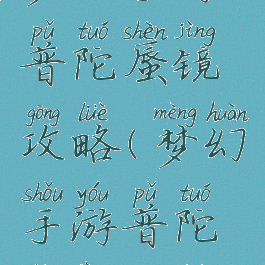 pǔ tuó shèn jìng
普陀蜃镜
gōng lüè mèng huàn
攻略(梦幻
shǒu yóu pǔ tuó
手游普陀